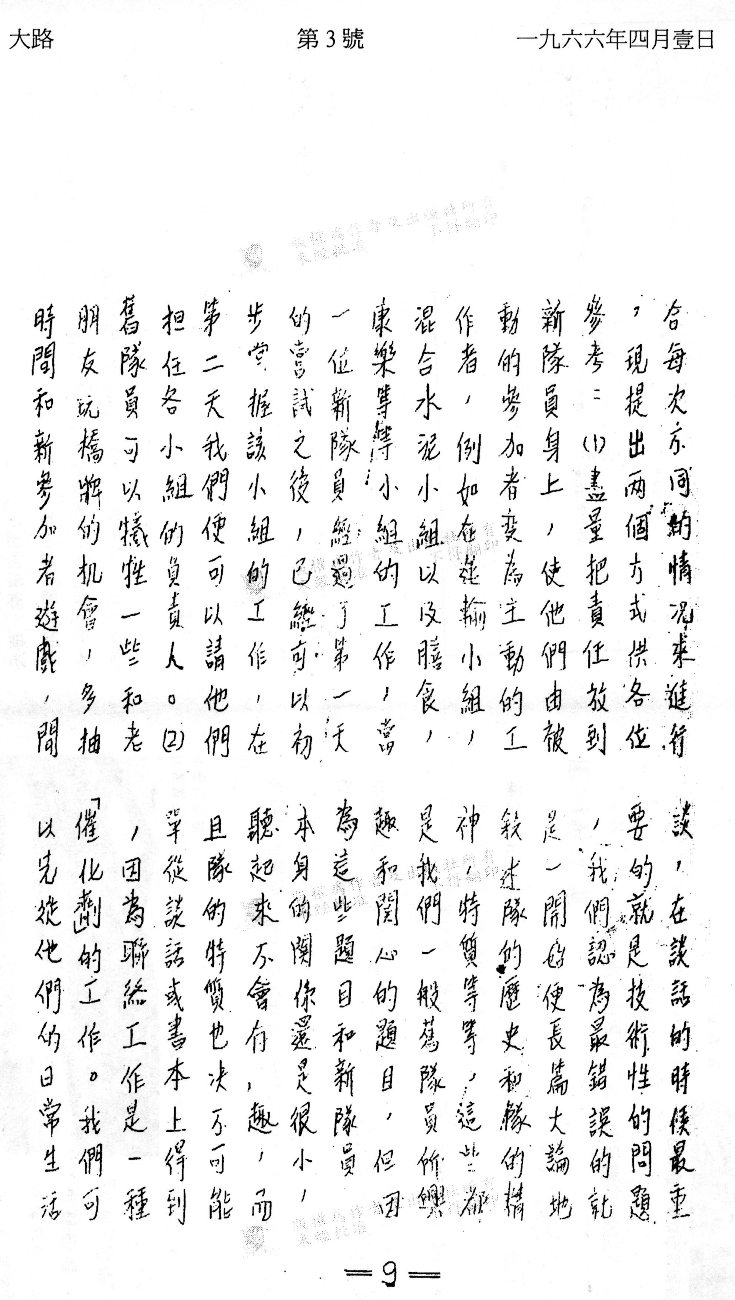 大路 第3號 一九六六年四月壹日
合每次不同的情況來進行
，現提出兩個方式供各位
參考：(1)盡量把責任放到
新隊員身上，使他們由被
動的參加者變為主動的工
作者，例如在運輸小組，
混合水泥小組以及膳食，
康樂等等小組的工作，當
一位新隊員經過了第一天
的嘗試之後，已經可以初
步掌握該小組的工作，在
第二天我們便可以請他們
担任各小組的負責人。(2)
舊隊員可以犧牲一些和老
朋友玩橋牌的机會，多抽
時間和新參加者遊戲，閒
談，在談話的時候最重
要的就是技術性的問題
，我們認為最錯誤的就
是一開始便長篇大論地
敘述隊的歷史和隊的精
神，特質等等，這些都
是我們一般舊隊員所興
趣和関心的題目，但因
為這些題目和新隊員
本身的関係還是很小，
聽起來不會有，趣，而
且隊的特質也决不可能
單從談話或書本上得到
，因為聯絡工作是一種
「催化劑」的工作。我們可
以先從他們的日常生活
=9=